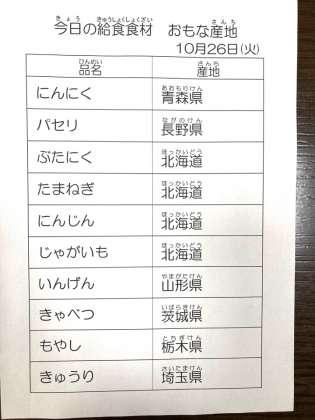 今日の給食食材 おもな産地
10月26日(火)
品名 産地
にんにく 青森県
パセリ 長野県
ぶたにく 北海道
たまねぎ 北海道
にんじん 北海道
じゃがいも 北海道
いんげん 山形県
きゃべつ 茨城県
もやし 栃木県
きゅうり 埼玉県